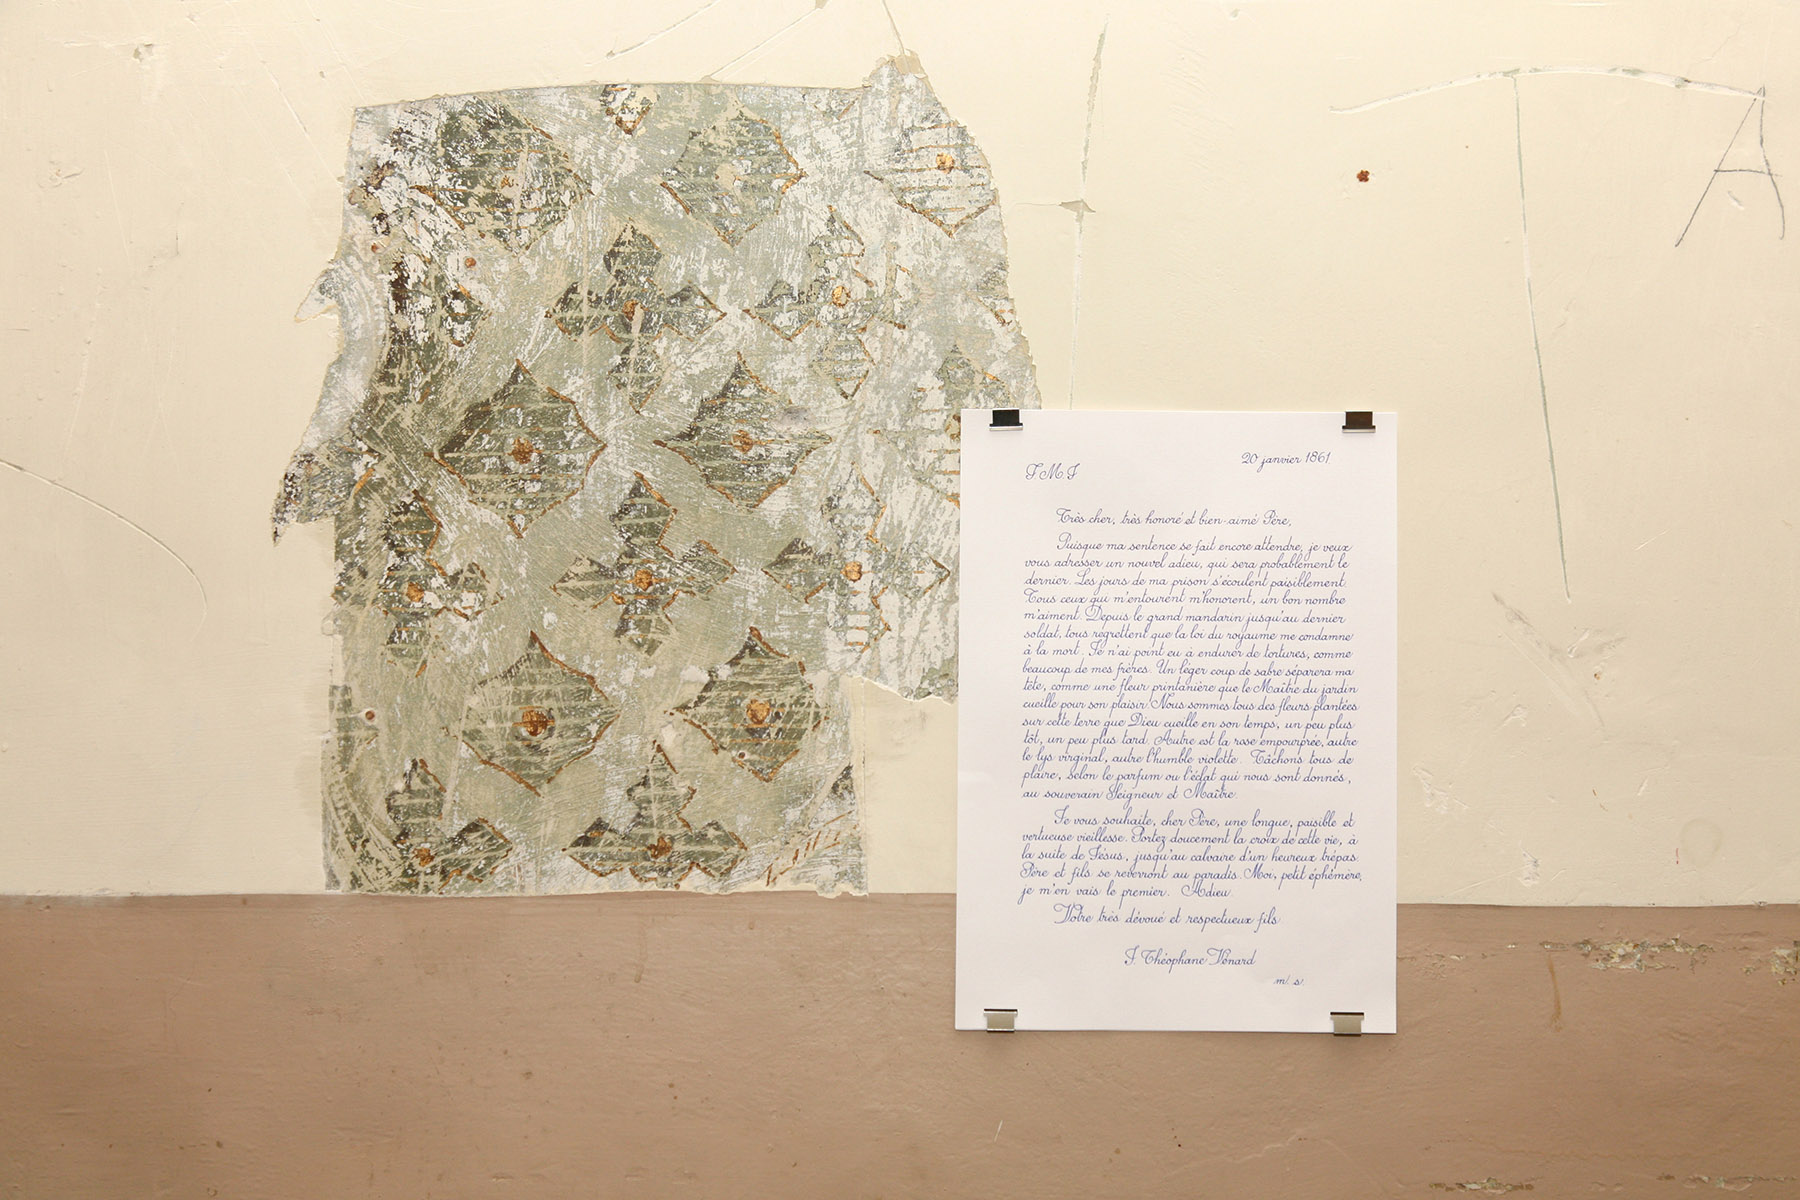 A
20 janvier 1861
J M J
Très cher, très honoré et bien-aimé Père,
Puisque ma sentence se fait encore attendre, je veux
vous adresser un nouvel adieu, qui sera probablement le
dernier. Les jours de ma prison s'écoulent paisiblement.
Tous ceux qui m'entourent m'honorent, un bon nombre
m'aiment. Depuis le grand mandarin jusqu'au dernier
soldat, tous regrettent que la loi du royaume me condamne
à la mort. Je n'ai point eu à endurer de tortures, comme
beaucoup de mes frères. Un léger coup de sabre séparera ma
tête, comme une fleur printanière que le Maître du jardin
cueille pour son plaisir. Nous sommes tous des fleurs plantées
sur cette terre que Dieu cueille en son temps, un peu plus
tôt, un peu plus tard. Autre est la rose empourprée, autre
le lys virginal, autre l'humble violette. Tâchons tous de
plaire, selon le parfum ou l'éclat qui nous sont donnés,
au souverain Seigneur et Maître.
Je vous souhaite, cher Père, une longue, paisible et
vertueuse vieillesse. Portez doucement la croix de cette vie, à
la suite de Jésus, jusqu'au calvaire d'un heureux trépas.
Père et fils se reverront au paradis. Moi, petit éphémère,
je m'en vais le premier. Adieu.
Votre très dévoué et respectueux fils
J. Théophane Vénard
m. s.